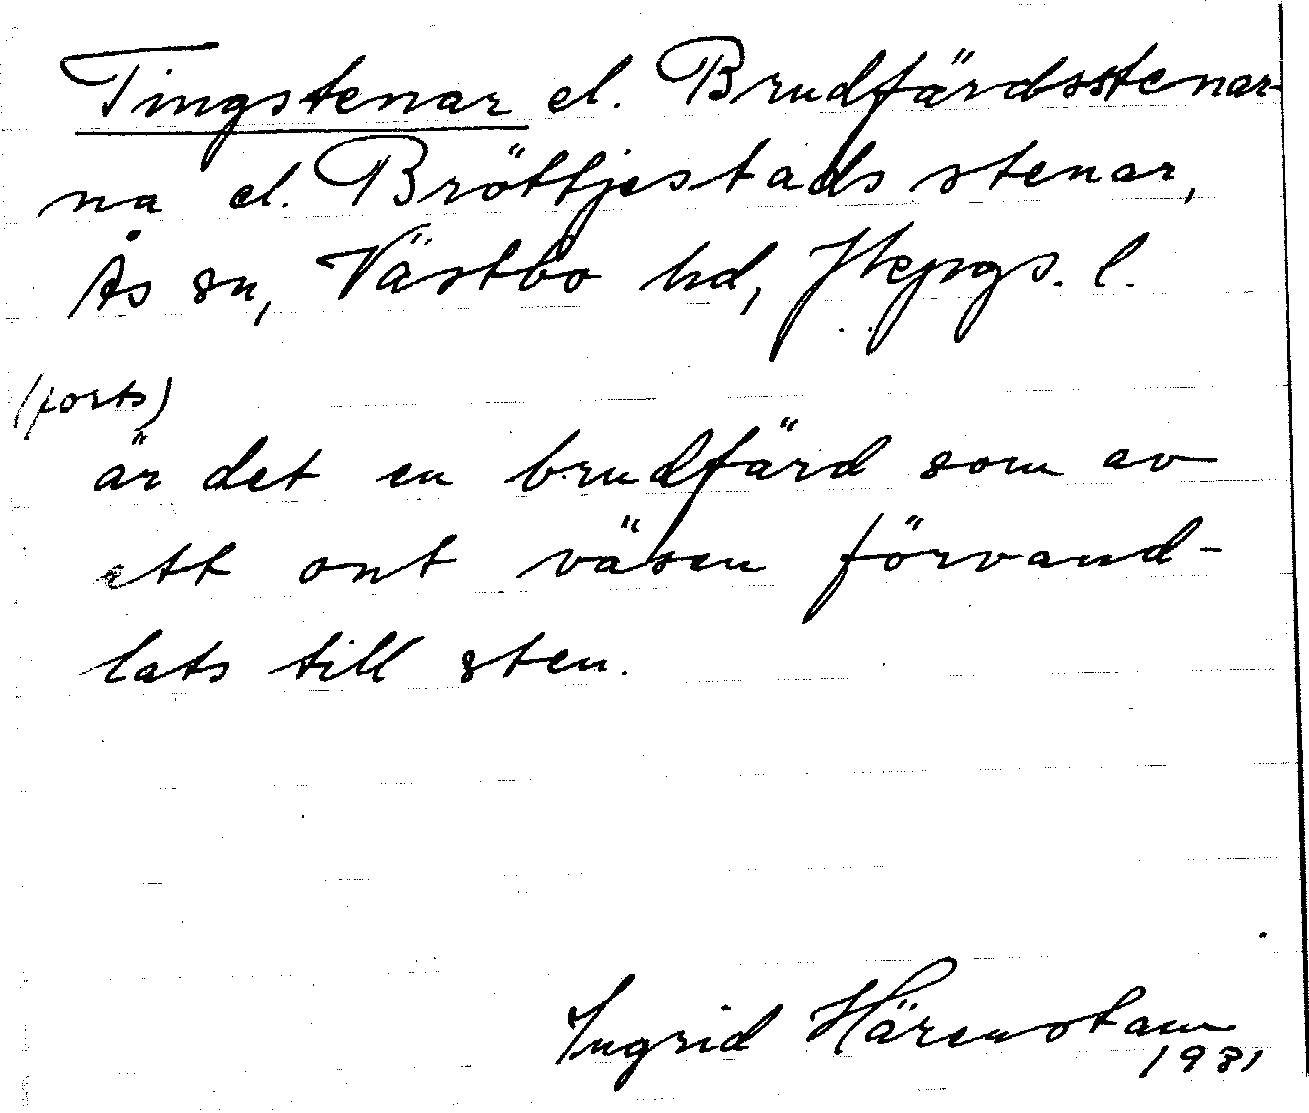 Tingstenar el. Brudfärdsstenar-
na el. Bröttjestads stenar,
Ås sn, Västbo hd, Jkpgs. l.
(forts)
är det en brudfärd som av
ett ont väsen förvand-
lats till sten.
Ingrid Härenstam
1981